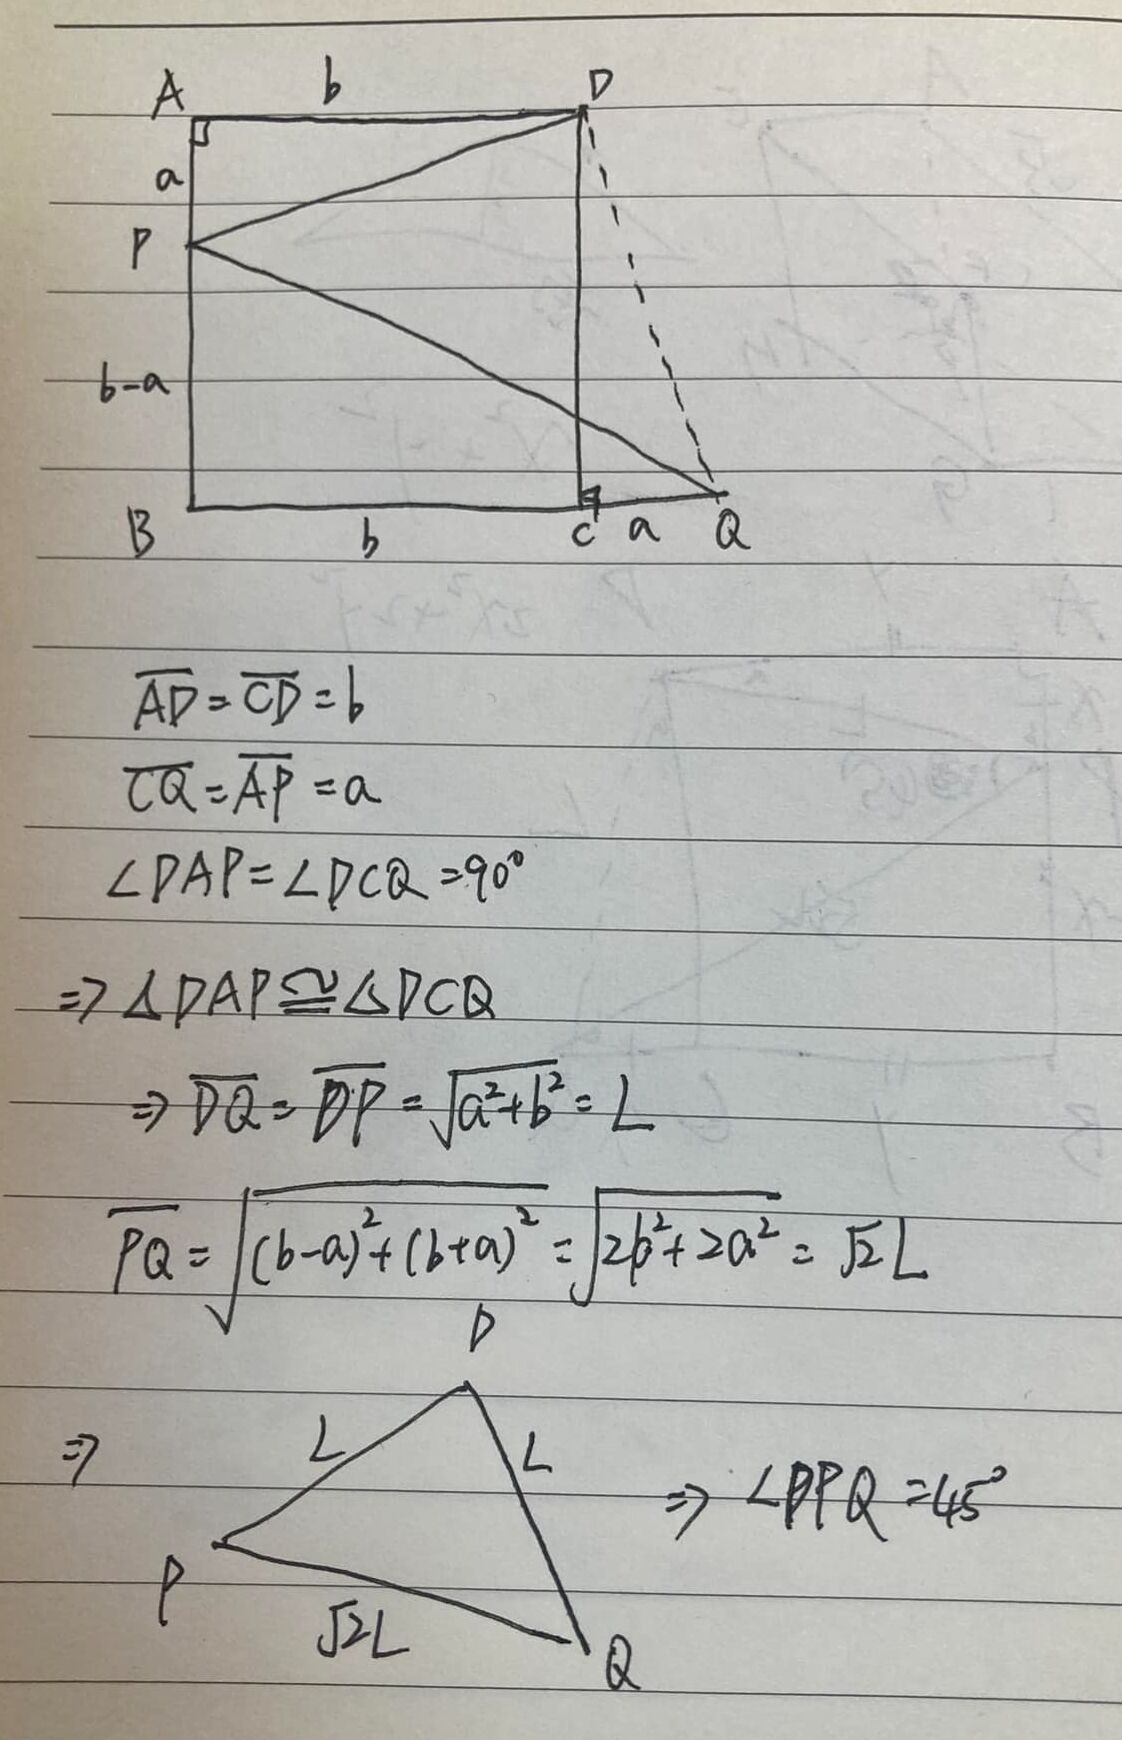 A b D
a
P
b-a
B b C a Q
AD̅ = CD̅ = b
CQ̅ = AP̅ = a
∠DAP = ∠DCQ = 90°
⇒ △DAP ≅ △DCQ
⇒ DQ̅ = DP̅ = √(a²+b²) = L
PQ̅ = √((b-a)²+(b+a)²) = √(2b²+2a²) = √2L
D
⇒ L L ⇒ ∠DPQ = 45°
P
√2L
Q